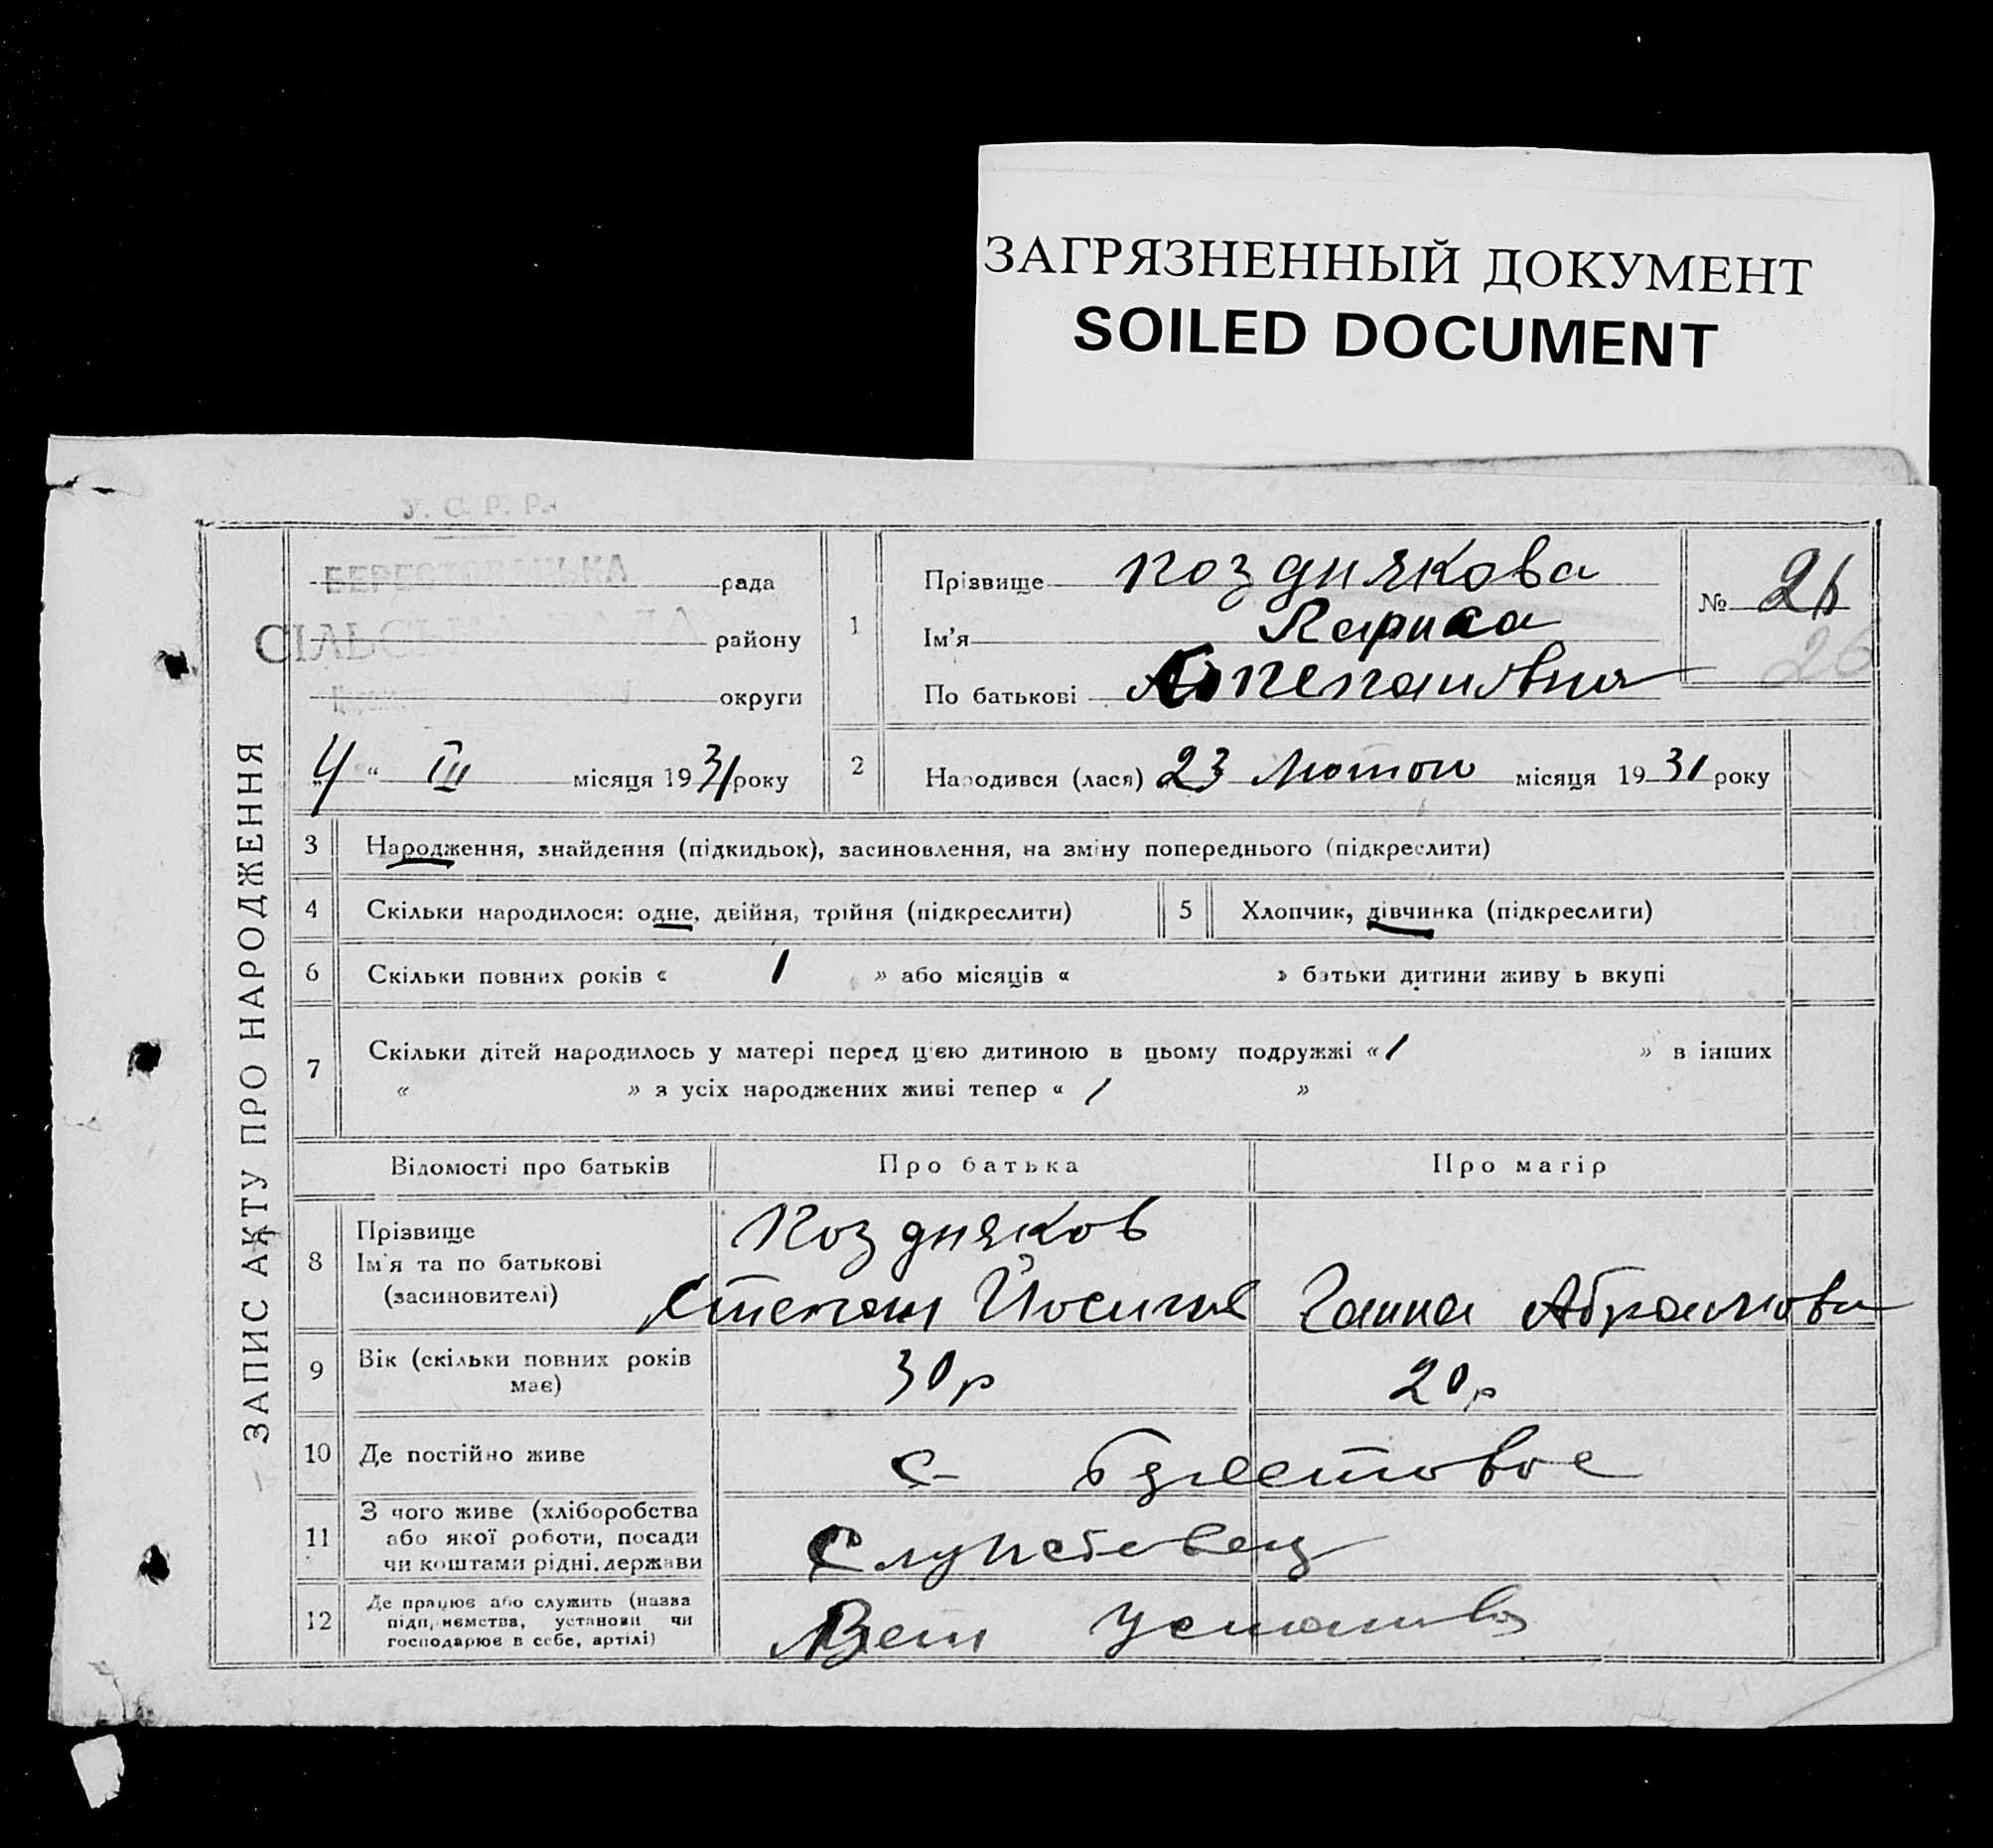 ЗАГРЯЗНЕННЫЙ ДОКУМЕНТ
SOILED DOCUMENT
У. С. Р. Р.
ЗАПИС АКТУ ПРО НАРОДЖЕННЯ
рада
СІЛЬСЬКА РАДА району
округи
4 " III місяця 1931 року
1
Прізвище Позднякова
Ім'я Лариса
По батькові Степановна
№ 26
26
2 Народився (лася) 23 Лютого місяця 1931 року
3 Народження, знайдення (підкидьок), засиновлення, на зміну попереднього (підкреслити)
4 Скільки народилося: одне, двійня, трійня (підкреслити) 5 Хлопчик, дівчинка (підкреслити)
6 Скільки повних років « 1 » або місяців « » батьки дитини живу ь вкупі
7 Скільки дітей народилось у матері перед цією дитиною в цьому подружжі « 1 » в інших
« » з усіх народжених живі тепер « 1 »
Відомості про батьків Про батька Про матір
8 Прізвище Поздняков
Ім'я та по батькові
(засиновителі) Степан Йосипов Ганна Абрамова
9 Вік (скільки повних років має) 30 р 20 р
10 Де постійно живе с. Берестовое
11 З чого живе (хліборобства
або якої роботи, посади
чи коштами рідні, держави Служебовец
12 Де працює або служить (назва
підприємства, установи чи
господарює в себе, артілі) Вет